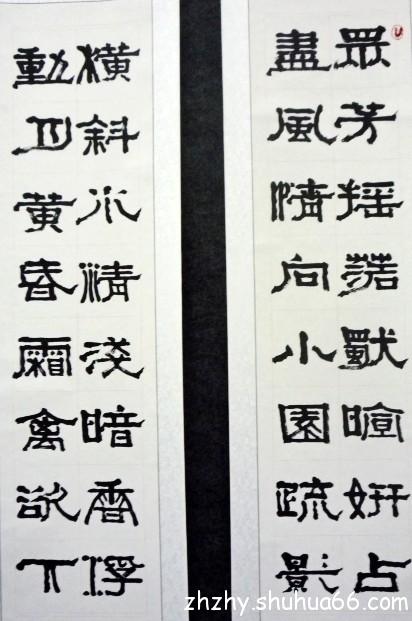 眾芳摇落獨暄妍占
盡風情向小園疏影
橫斜水清淺暗香浮
動月黄昏霜禽欲下
zhzhy.shuhua66.com